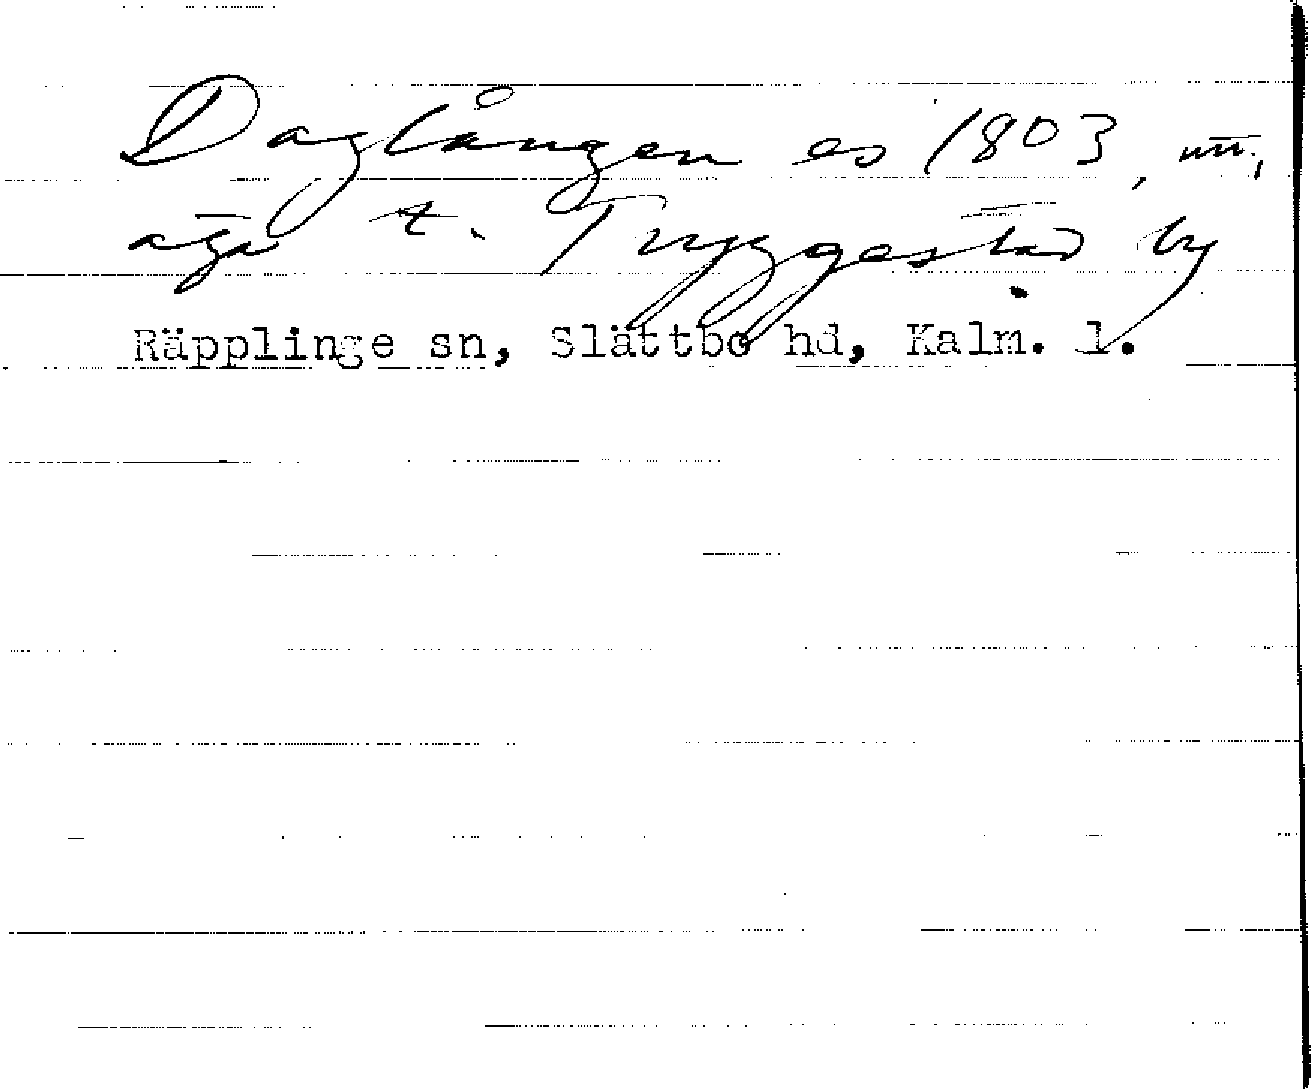 Daglången es 1803, un,
äga t. Tryggestad by
Räpplinge sn, Slättbo hd, Kalm. l.